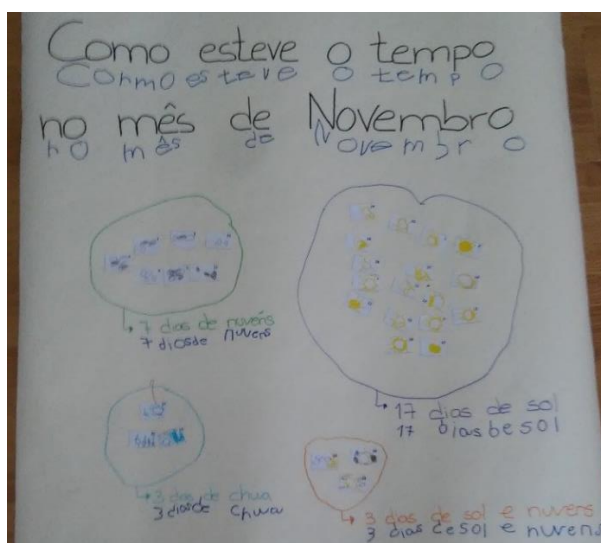 Como esteve o tempo
Cohmo esteve o tempo
no mês de Novembro
no mês de Novembro
7 dias de nuvens
7 dias de nuvens
17 dias de sol
17 dias be sol
3 dias de chuva
3 dias de chuva
3 dias de sol e nuvens
3 dias de sol e nuvens